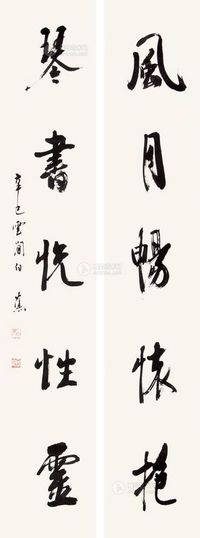 風月暢懷抱
琴書悦性靈
辛巳雲間白蕉